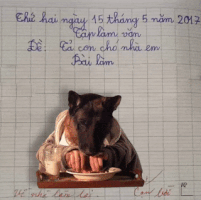 Thứ hai ngày 15 tháng 5 năm 2017
Tập làm văn
Đề: Tả con chó nhà em
Bài làm